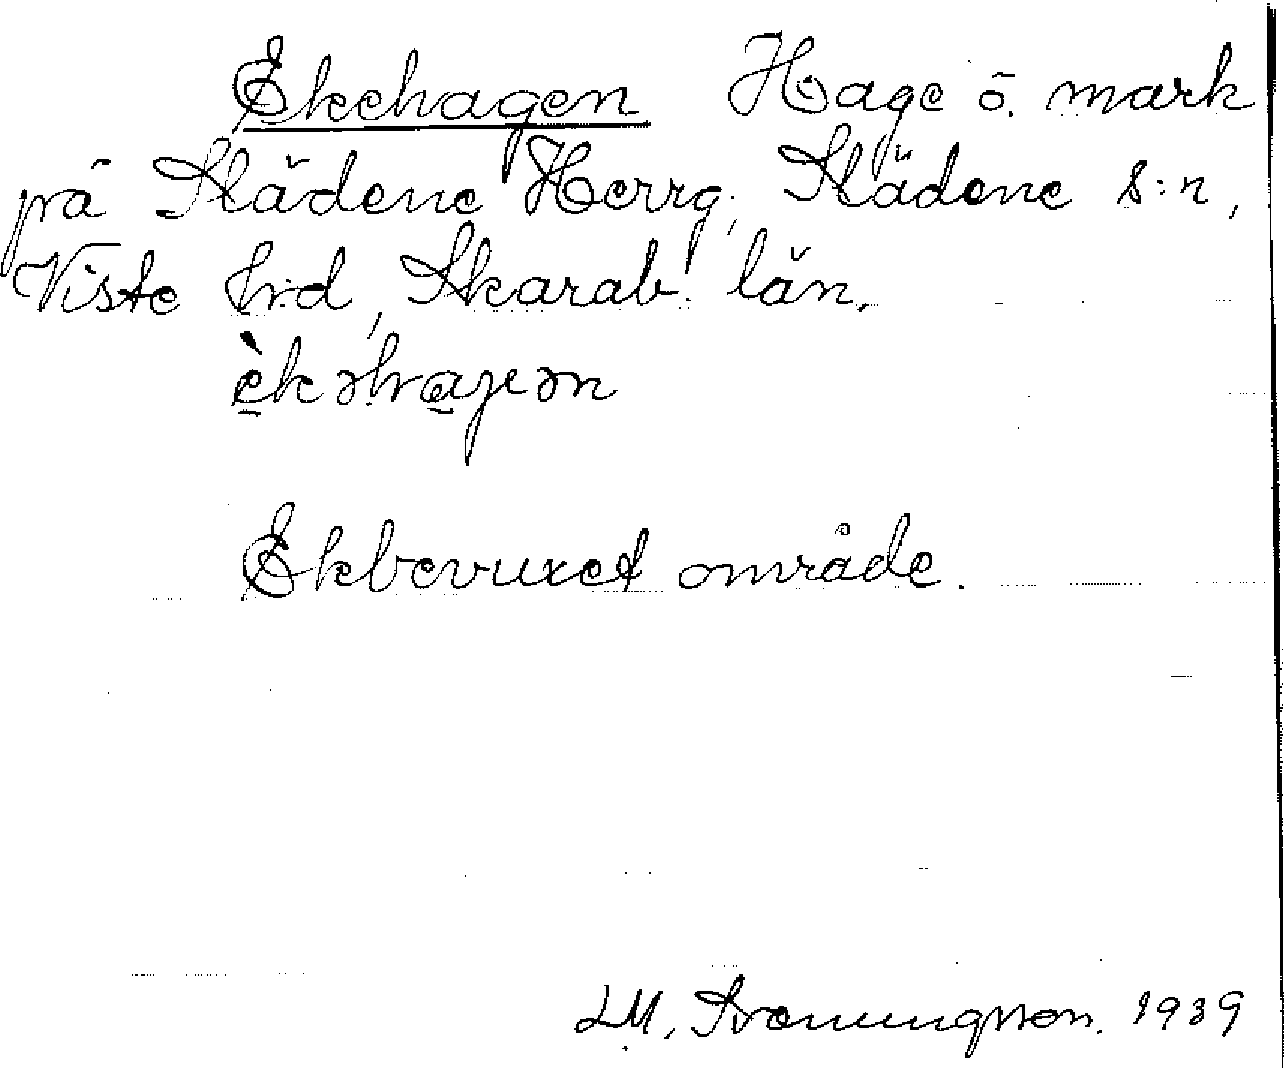 Ekehagen Hage ö. mark
på Slädene Herrg., Slädene s:n,
Viste h:d, Skarab. län.
èkəhaɡən
Ekbevuxet område.
L.M. Svenungsson. 1939